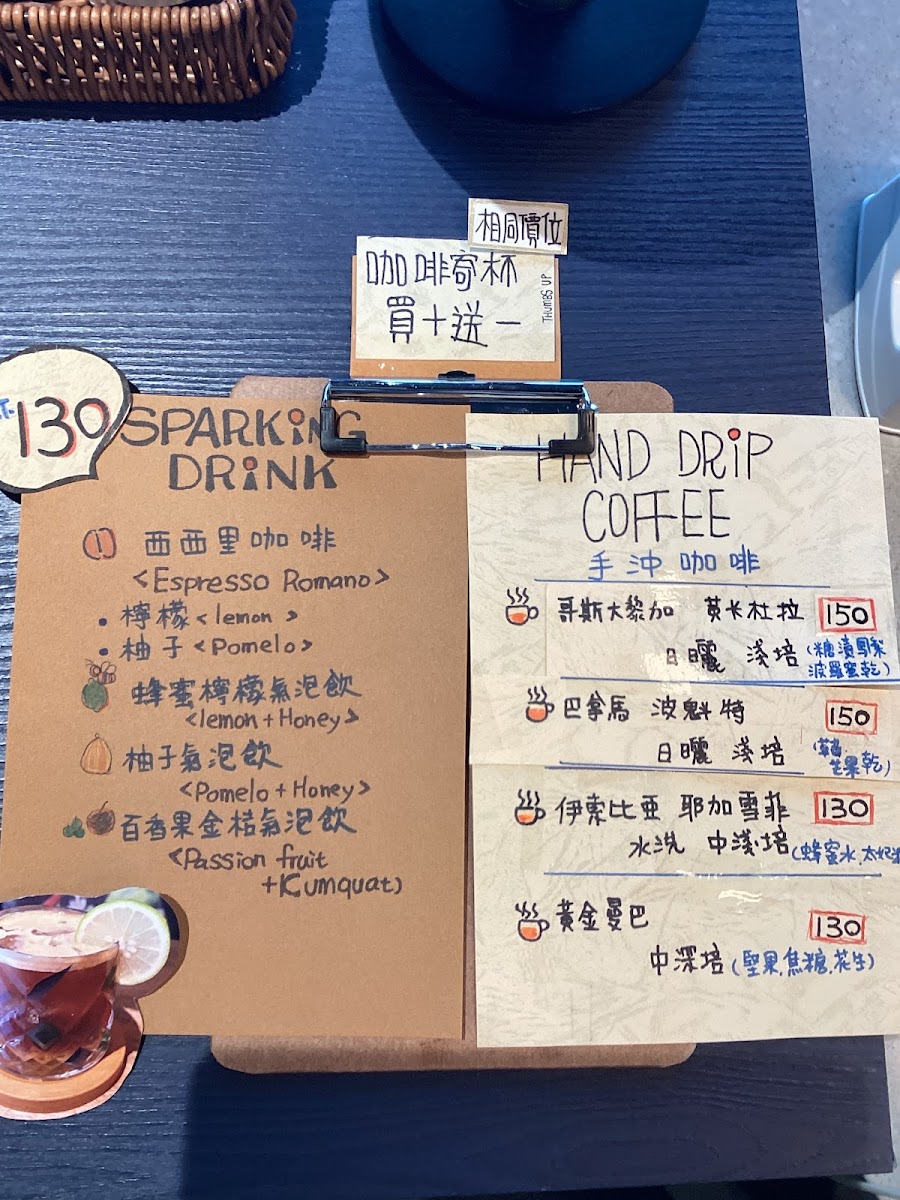 相同價位
咖啡寄杯
買十送一
THUMBS UP
130
SPARKiNG
DRiNK
西西里咖啡
<Espresso Romano>
• 檸檬<lemon >
• 柚子<Pomelo>
蜂蜜檸檬氣泡飲
<lemon+Honey>
柚子氣泡飲
<Pomelo+Honey>
百香果金桔氣泡飲
<Passion fruit
+Kumquat)
HAND DRiP
COFFEE
手沖咖啡
哥斯大黎加 英卡杜拉 150
日曬 淺培 (糖漬鳳梨
波羅蜜乾)
巴拿馬 波魁特 150
日曬 淺培
芒果乾)
伊索比亞 耶加雪菲 130
水洗 中淺培(蜂蜜水.太妃
黃金曼巴 130
中深培(堅果.焦糖.花生)